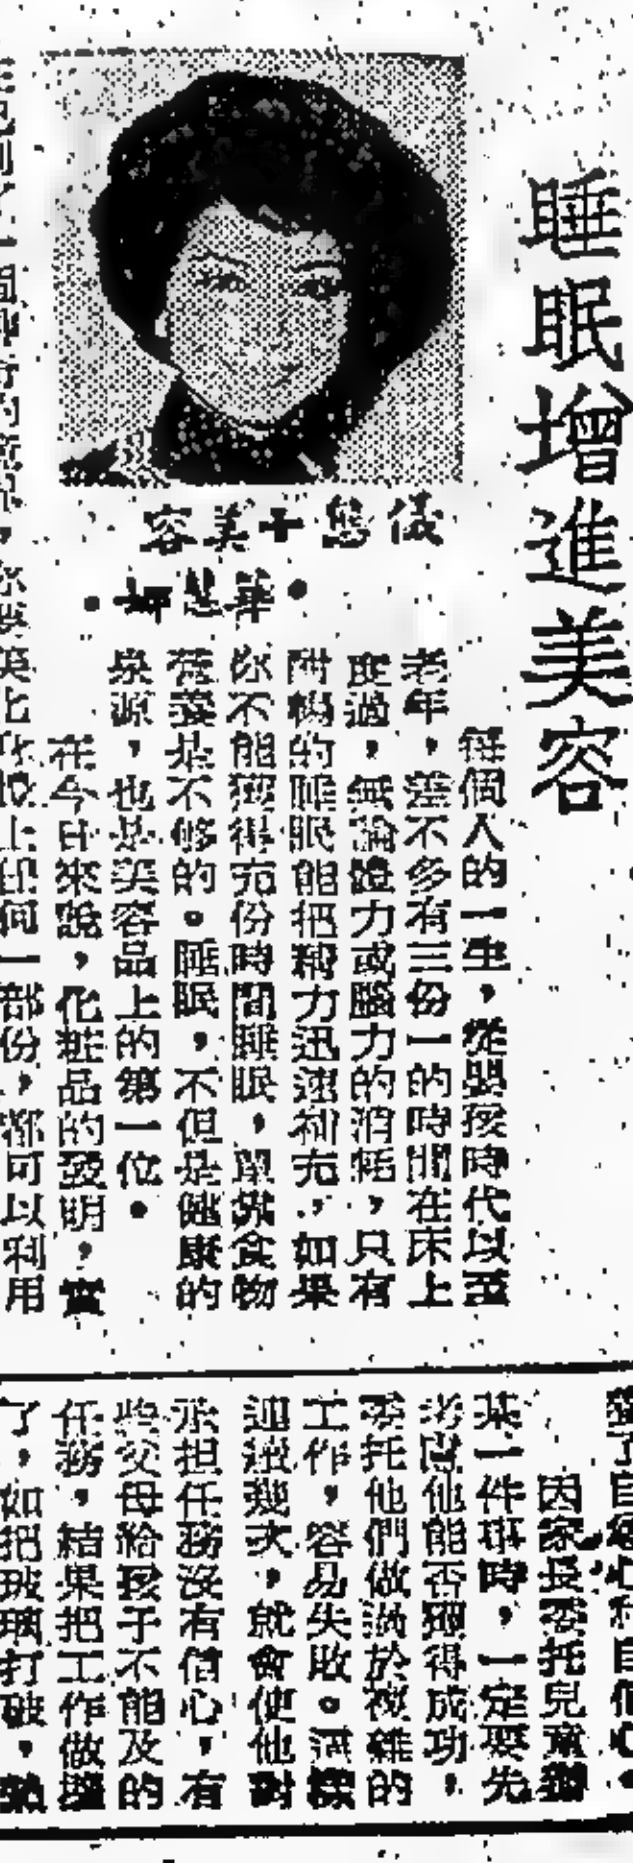 睡眠增進美容
儀態千美容
•華慧珊•
每個人的一生，從嬰孩時代以至
老年，差不多有三份一的時間在床上
度過，無論體力或腦力的消耗，只有
酣暢的睡眠能把精力迅速補充，如果
你不能獲得充份時間睡眠，單靠食物
營養是不够的。睡眠，不但是健康的
泉源，也是美容品上的第一位。
在今日來說，化粧品的發明，實
任何一部份，都可以利用
自信心。
因家長委托兒童辦
某一件事時，一定要先
考慮他能否獲得成功，
委托他們做過於複雜的
工作，容易失敗。這樣
連續幾次，就會使他對
承担任務沒有信心，有
些父母給孩子不能及的
任務，結果把工作做壞
了，如把玻璃打破，